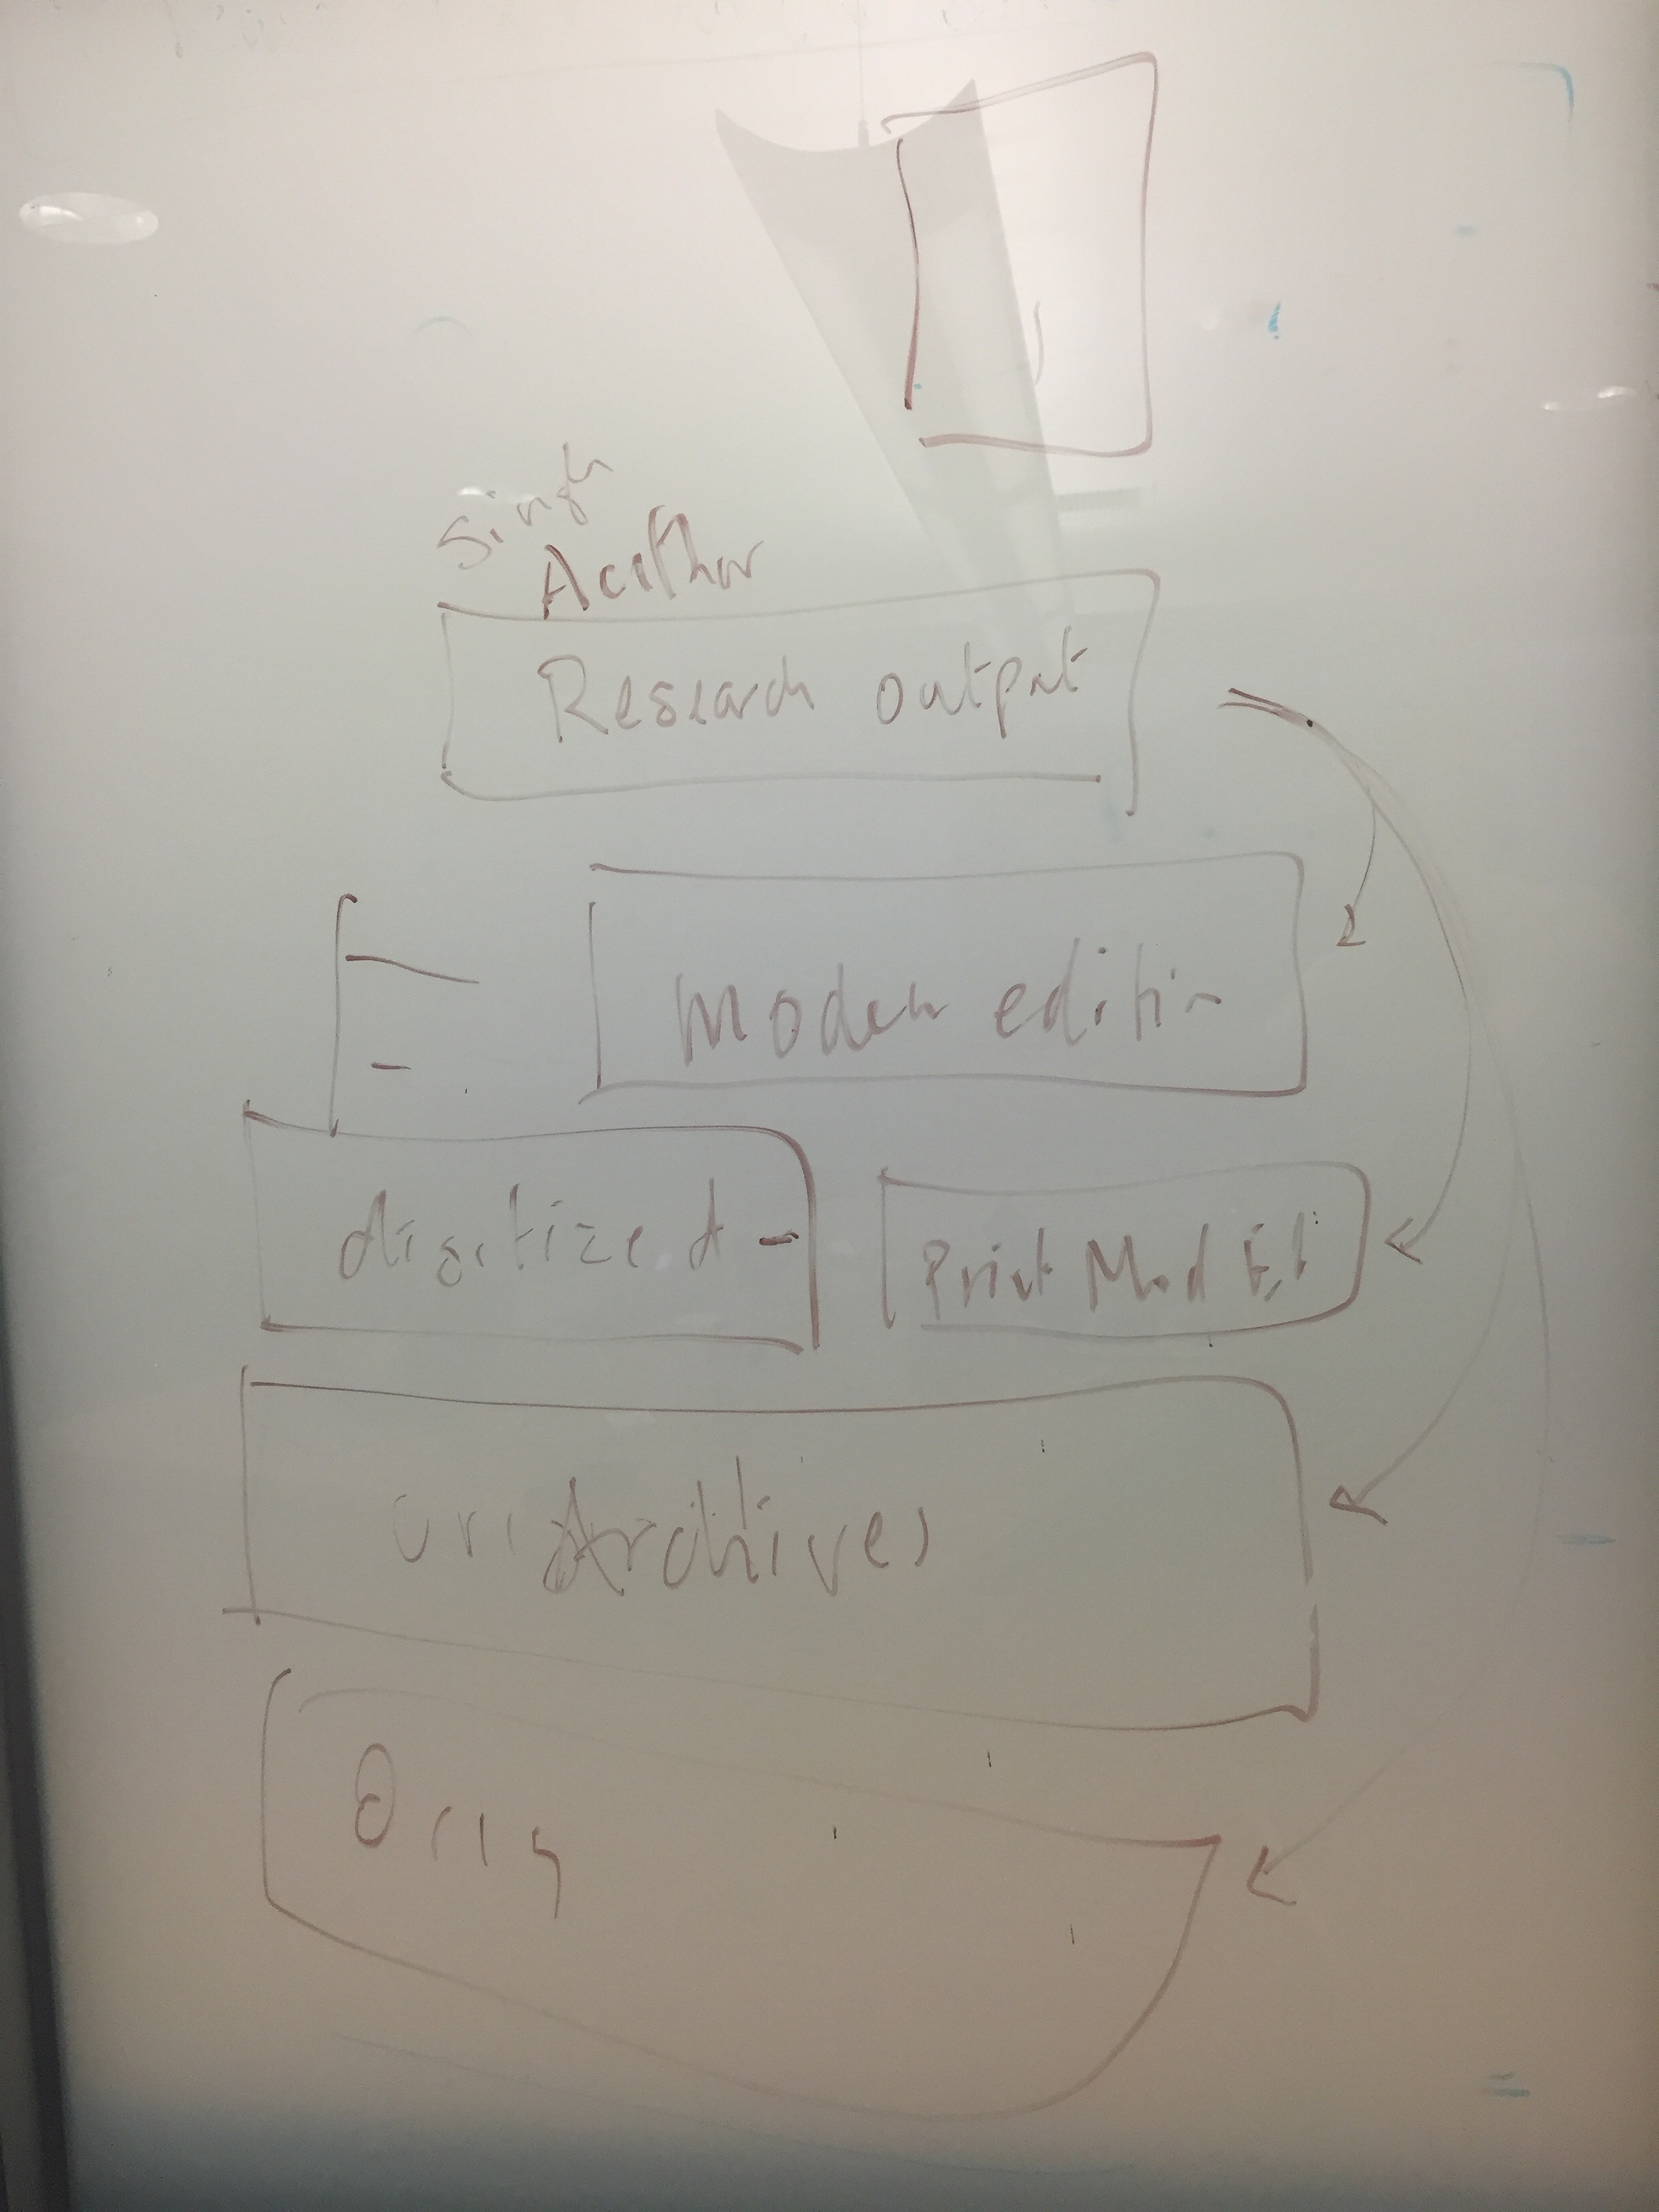 Single
Author
Research output
Modern edition
digitized -
Print Mod Ed
Ori Archives
Orig